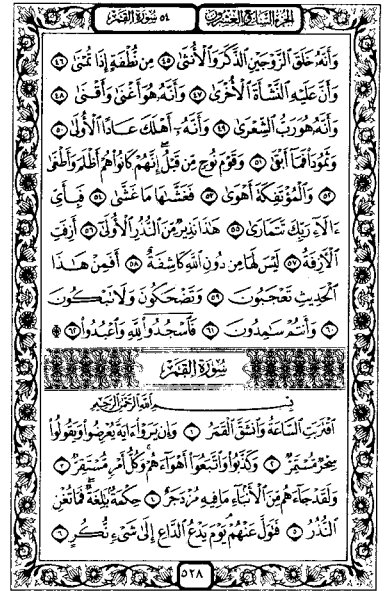 الجزء السابع والعشرون ٥٤ سورة القمر
وَأَنَّهُ خَلَقَ الزَّوْجَيْنِ الذَّكَرَ وَالْأُنثَىٰ ٤٥ مِن نُّطْفَةٍ إِذَا تُمْنَىٰ ٤٦
وَأَنَّ عَلَيْهِ النَّشْأَةَ الْأُخْرَىٰ ٤٧ وَأَنَّهُ هُوَ أَغْنَىٰ وَأَقْنَىٰ ٤٨
وَأَنَّهُ هُوَ رَبُّ الشِّعْرَىٰ ٤٩ وَأَنَّهُ أَهْلَكَ عَادًا الْأُولَىٰ ٥٠
وَثَمُودَا فَمَا أَبْقَىٰ ٥١ وَقَوْمَ نُوحٍ مِّن قَبْلُ إِنَّهُمْ كَانُوا هُمْ أَظْلَمَ وَأَطْغَىٰ
٥٢ وَالْمُؤْتَفِكَةَ أَهْوَىٰ ٥٣ فَغَشَّاهَا مَا غَشَّىٰ ٥٤ فَبِأَيِّ
ءَالَاءِ رَبِّكَ تَتَمَارَىٰ ٥٥ هَٰذَا نَذِيرٌ مِّنَ النُّذُرِ الْأُولَىٰ ٥٦ أَزِفَتِ
الْآزِفَةُ ٥٧ لَيْسَ لَهَا مِن دُونِ اللَّهِ كَاشِفَةٌ ٥٨ أَفَمِنْ هَٰذَا
الْحَدِيثِ تَعْجَبُونَ ٥٩ وَتَضْحَكُونَ وَلَا تَبْكُونَ
٦٠ وَأَنتُمْ سَامِدُونَ ٦١ فَاسْجُدُوا لِلَّهِ وَاعْبُدُوا ۩ ٦٢
سُورَةُ القَمَرِ
بِسْمِ اللَّهِ الرَّحْمَٰنِ الرَّحِيمِ
اقْتَرَبَتِ السَّاعَةُ وَانشَقَّ الْقَمَرُ ١ وَإِن يَرَوْا ءَايَةً يُعْرِضُوا وَيَقُولُوا
سِحْرٌ مُّسْتَمِرٌّ ٢ وَكَذَّبُوا وَاتَّبَعُوا أَهْوَاءَهُمْ وَكُلُّ أَمْرٍ مُّسْتَقِرٌّ ٣
وَلَقَدْ جَاءَهُم مِّنَ الْأَنبَاءِ مَا فِيهِ مُزْدَجَرٌ ٤ حِكْمَةٌ بَالِغَةٌ فَمَا تُغْنِ
النُّذُرُ ٥ فَتَوَلَّ عَنْهُمْ يَوْمَ يَدْعُ الدَّاعِ إِلَىٰ شَيْءٍ نُّكُرٍ ٦
٥٢٨